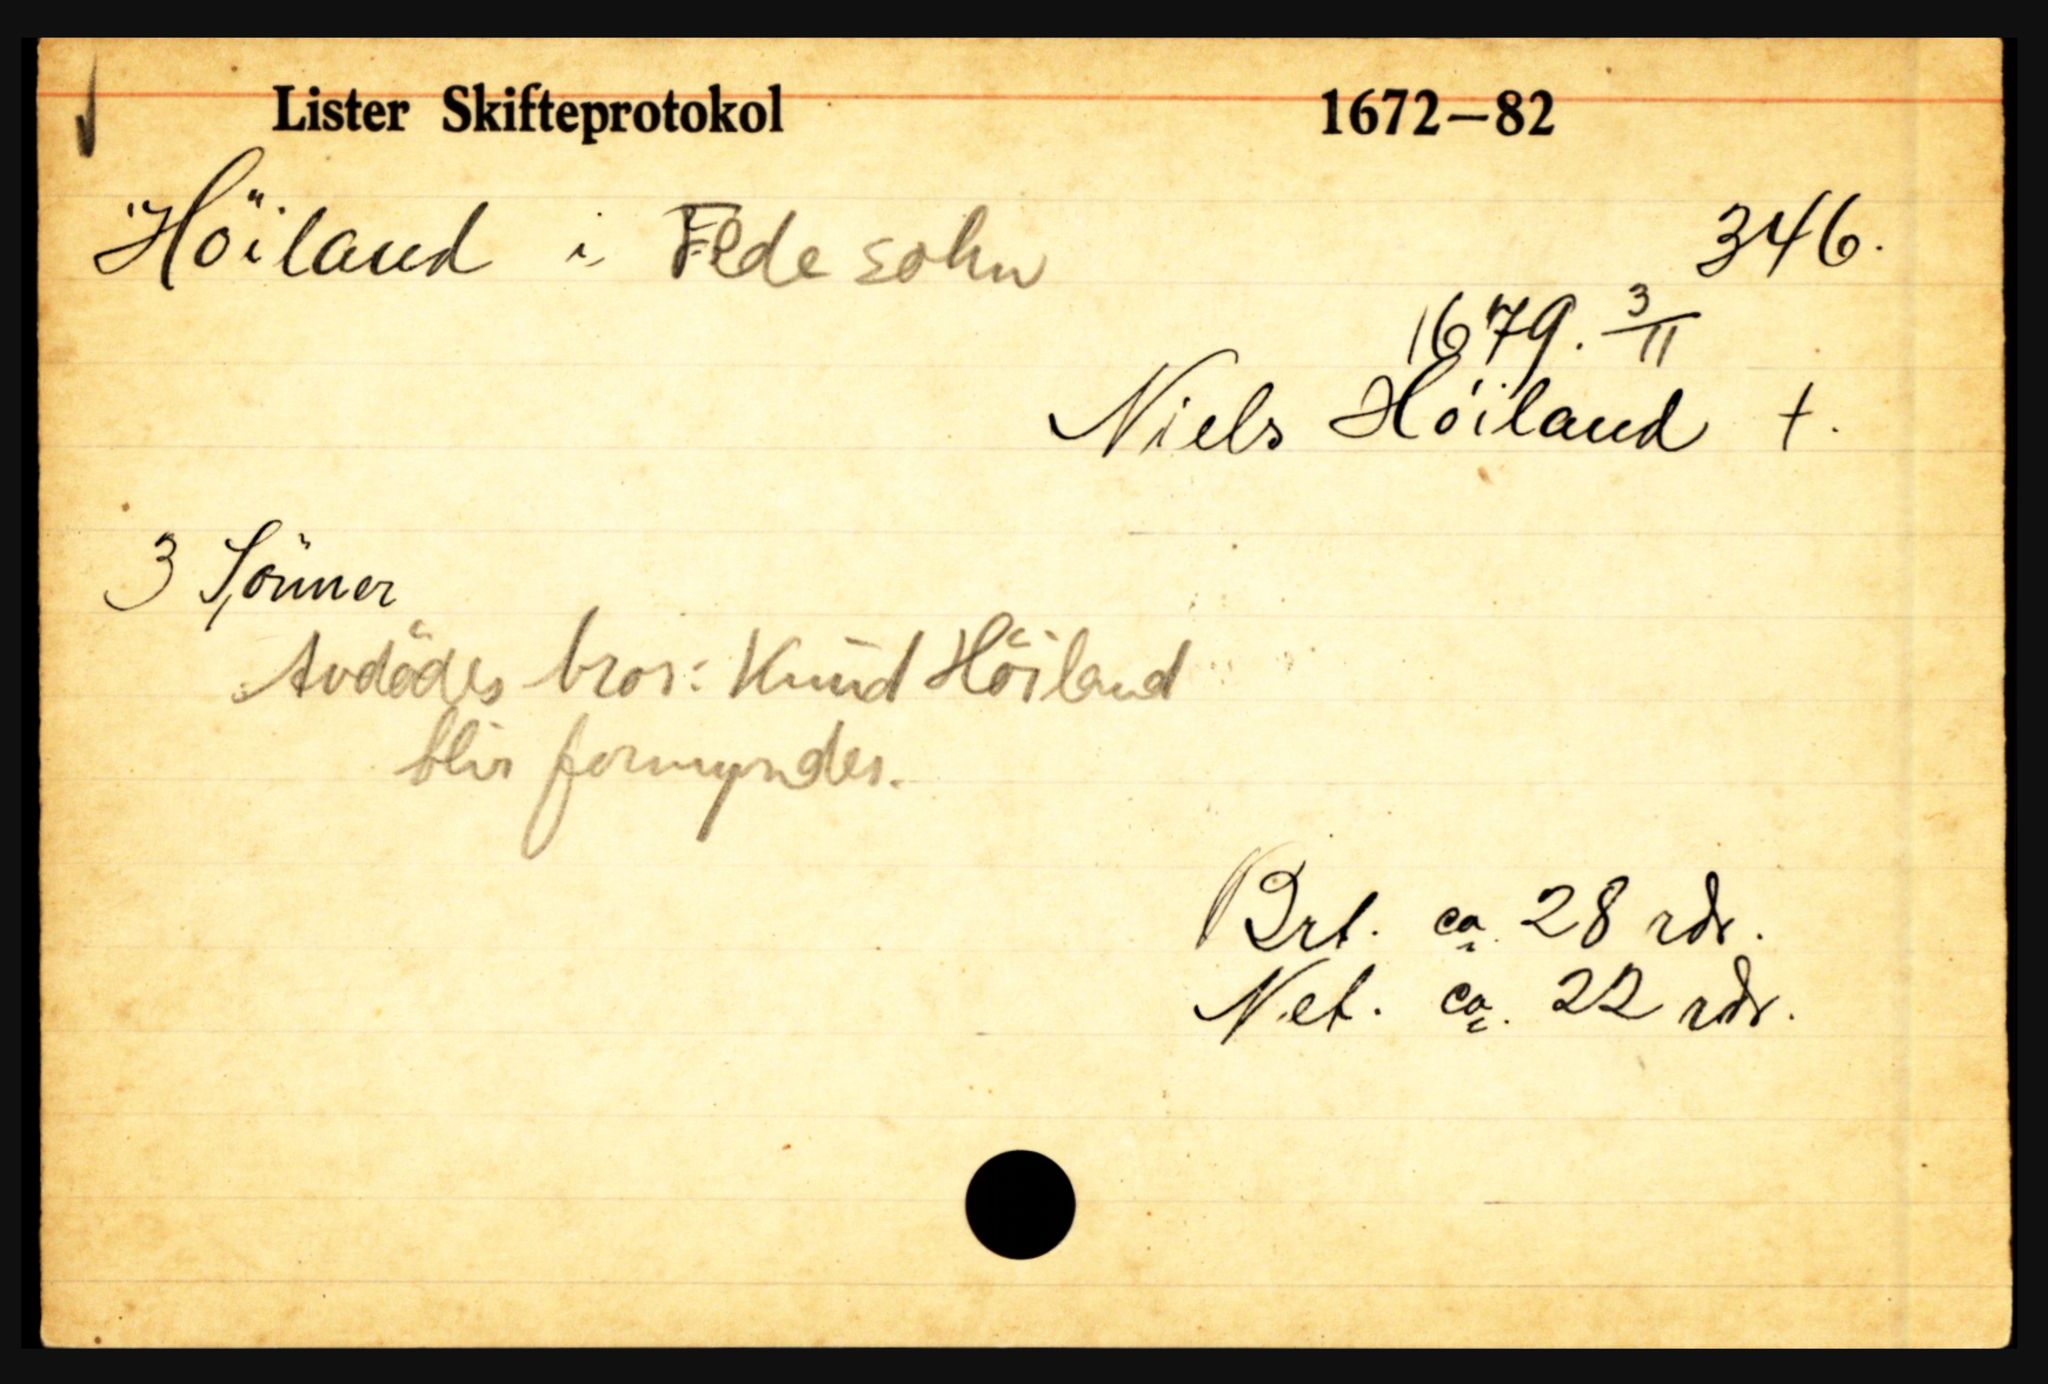 Lister Skifteprotokol 1672–82
Höiland i Fede sokn 346.
1679. 3/11
Niels Höiland †.
3 Sönner
Avdödes bror: Knud Höiland
blir formynder.
Brt. ca. 28 rdr.
Net. ca. 22 rdr.